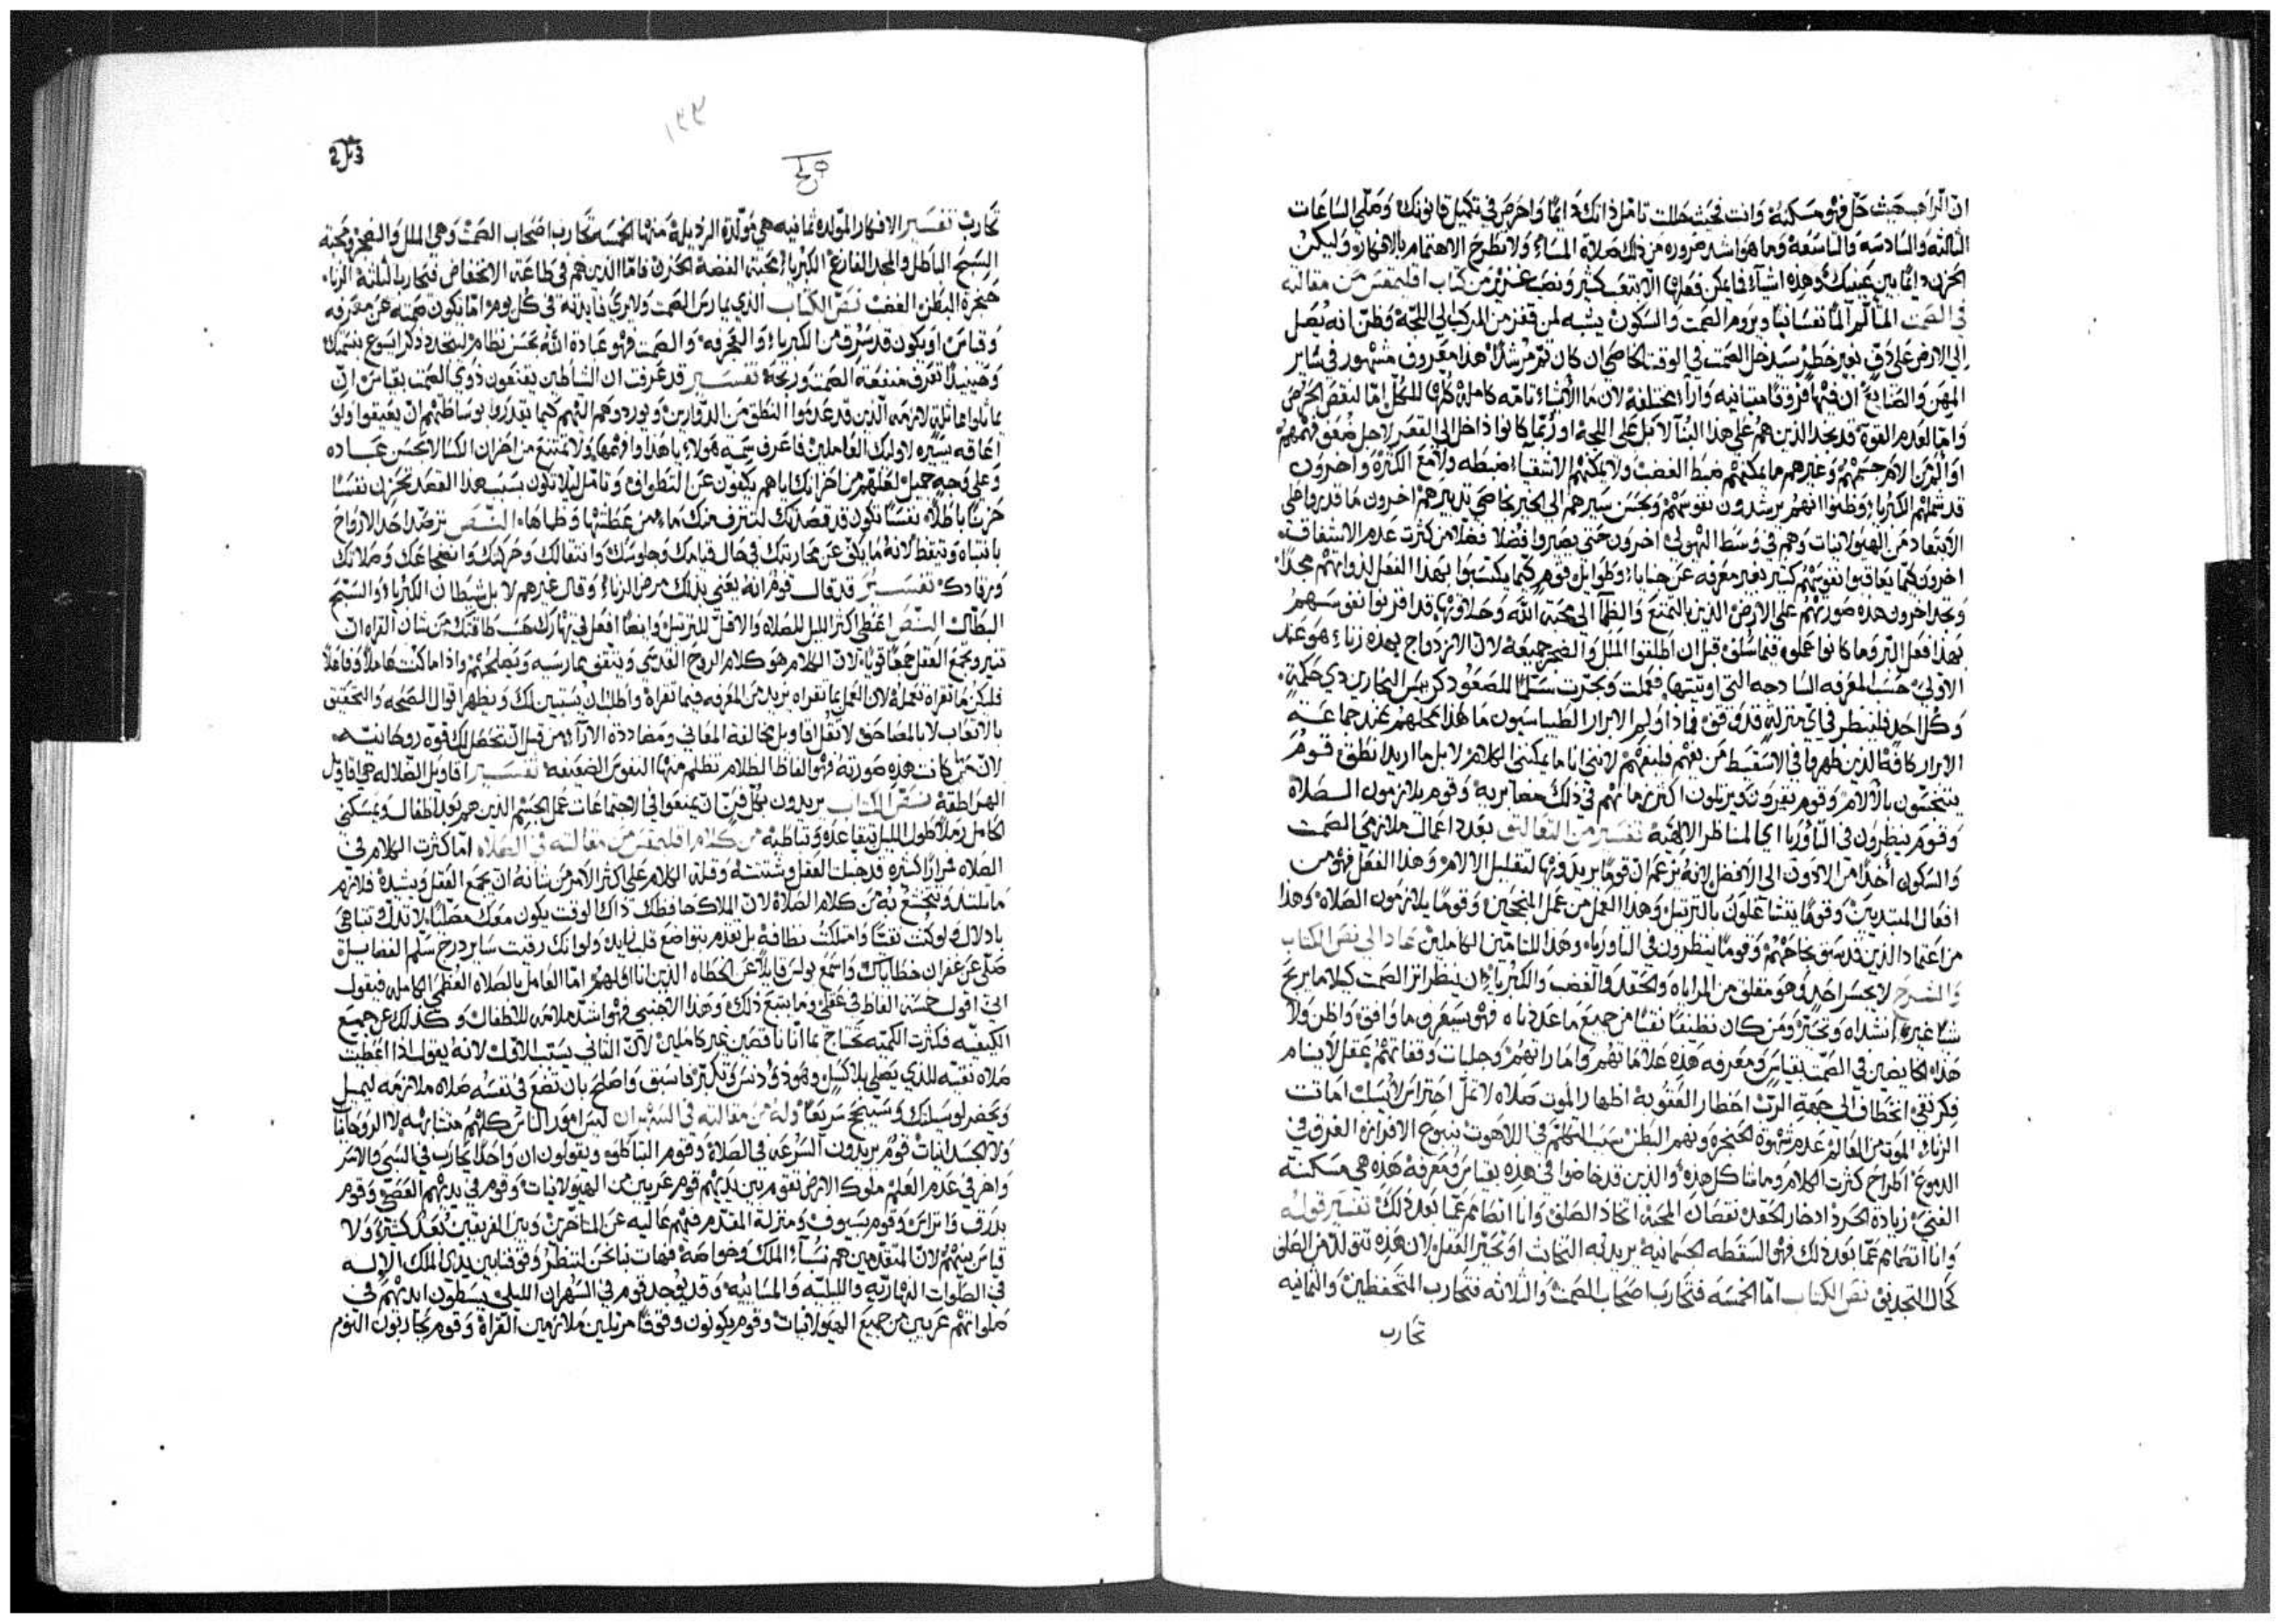 ان الراهب حيث حل فهو مسكنه وانت بحيث حللت تامل ذاتك دايمًا واحرص في تكميل قانونك وصلّي الساعات
الثالثه والسادسه والتاسعة وما هو اشد ضروره من ذلك صلاة المساء ولا تطرح الاهتمام بالافكار وليكن
الحزن دايمًا بين عينيك وهذه اشياء فما يمكن فعلها الا بتعب كثير ونصب غزير من كتاب اقليمقس من مقالته
في الصمت المتالم المًا نفسانيًا ويروم الصمت والسكون يشبه لمن قفز من المركب الي اللجّة وظنّ انه يصل
الي الارض على دفّ بغير خطر سيدخل الصمت في الوقت الخاصي ان كان ثم مرشدًا هذا معروف مشهور في ساير
المهن والصنايع ان فيها فروقًا متباينه واراء مختلفة لان ما الاشياء تامه كاملة كلها للكل امّا لنقص الحرص
وامّا لعدم القوة قد نجد الذين هم على هذا البناء لا بل على اللجة او ربما كانوا ذاخل الي القعر لاجل ضعف فمهم
وغيرهم ما يمكنهم ضبط الغضب ولا يمكنهم الاشقياء ضبطه ولا مع الكثرة واخرون
قد شملهم الكبرياء وظنوا انهم يرشدون نفوسهم ويحسن سيرهم الى الخير بخاصي تدبيرهم اخرون ما قدروا على
الابتعاد من الهيولانيات وهم في وسط الهيولى اخرون حتى يصيروا فضلا فضلا من كثرت عدم الاشفاق
اخرون كيما يعاقبوا نفوسهم كثير بغير معرفه عن جنايا وطوايل قوم كيما يكتسبوا بهذا الفعل لذواتهم مجدًا
ونجد اخرون هذه صورتهم على الارض الذين بالتمتع والظما الي محبة الله وحلاوتها قد اقرنوا نفوسهم
بهذا فعل البر وما كانوا عملوه فيما سلف قبل ان اطلقوا الملل والضجر جميعه لان الازدواج بهذه زناء هو عند
الاولى حسب المعرفه الساذجه التي اوتيتها فعملت ونجرت سلّمًا للصعود كريس النجارين ذي حكمة
وكل احد فلينظر في اي منزلة قد وقف
الابرار كافة الذين ظهروا في الاسقيط من بفهم فليفهم لانني انا ما يمكنني الكلام لا بل ما اريد انطق قوم
ينتحبون بالآلام وقوم يقيرون ويرتلون اكثر زمانهم في ذلك مصابرية وقوم يلازمون الصلاة
وقوم ينظرون في الثاوريا اي المناظر الالهية تفسير من التعاليق يعدد اعمال ملازمي الصمت
والسكون اخذًا من الادون الى الافضل لانه يزعم ان قومًا يريدونها لتقليل الالام وهذا الفعل فهو من
افعال المبتديين وقومًا يتشاغلون بالترتيل وهذا العمل من عمل المنجحين وقومًا يلازمون الصلاة وهذا
من اعتماد الذين قد سبق نجاحهم وقومًا ينظرون في الثاورياء وهذا للتامّين الكاملين عاد الى نص الكتاب
والشرح لا يجسر احد وهو مقلق من المراياه والحقد والغضب والكبرياء ان ينظر اثر الصمت كيلا ما يربح
شيا غيره انشداه وتحيّر ومن كان نظيفًا نقيًا من جميع ما عددناه فهو سيعرف ما وافق واظن ولا
هذا الخايضين في الصمت بقياس ومعرفه هذه علاماتهم واماراتهم وجليات وقفاتهم عقل لا ينام
فكر نقي اختطاف الى جهة الرب احضار العقوبه اظهار الموت صلاه لا تمل احتراس لا يسلب امانت
الزناء الموت من العالم عدم شهوة الحنجره ونهم البطن سبب التكلم في اللاهوت ينبوع الافرازه الغرق في
الدموع اطراح كثرت الكلام وما شاكل هذه والذين قد خاضوا في هذه بقياس ومعرفة هذه هي مسكنة
الغني زيادة الحرد ادخار الحقد نقصان المحبة اتخاذ الصلف وانا انضامم عمّا بعد ذلك تفسير قوله
وانا انضامم عمّا بعد ذلك فهو السقطه الجسمانية يريد به النجاث او تحيّر العقل لان هذه تتولد من الصلف
كحال التجديف نص الكتاب امّا الخمسه فتحارب اصحاب الصمت والثلاثه فتحارب المتحفظين والثمانيه
تحارب
١٣٣
تحارب تفسير الافكار المولده ثمانيه هي مولّدة الرذيلة منها الخمسه تحارب اصحاب الصمت وهي الملل والضجر ومحبة
السبح الباطل والمجد الفارغ الكبرياء محبة الفضة الحزن فامّا الذين هم في طاعة الانخفاض فتحاربهم الثلثة الزناء
حنجرة البطن الغضب نص الكتاب الذي يمارس الصمت ولا يرى فايدته في كل يوم امّا يكون صمته عن معرفه
وقياس او يكون قد سُرق من الكبرياء والتعرفه والصمت فهو عبادة الله بحسن نظام ليتحدد ذكر ايسوع بنسمتك
وحينيذًا تعرف منفعة الصمت وربحه تفسير قد عرفت ان الشياطين يقنعون ذوي الصمت بقياس ان
يماثلوا مماثلة لازمه الذين قد عدموا النطق من الدوّارين ويوردوهم اليهم كيما يقدروا بوساطتهم ان يعيقوا ولو
اعاقه يسيره لاوليك العاملين فاعرف سمة هولاء ياهذا وافهمها ولا تمتنع من احزان الكسالا بحسن عباده
وعلى وجه جميل لعلهم من احزانك اياهم يكفّون عن التطواف وتامل ليلا تكون بسبب هذا القصد تحزن نفسًا
حزنًا باطلًا نفسًا تكون قد قصدتك لتغترف منك ماء من عطشها وظماها النص ترصّد احد الارواح
بانتباه وتيقظ لانه ما يكفّ عن محاربتك في حال قيامك وجلوسك وانتقالك وحركتك وانضجاعك وصلاتك
ورقادك تفسير قد قال قوم انه يعني بذلك مرض الزناء وقال غيرهم لا بل شيطان الكبرياء والسبح
البطال النص اعطي اكثر الليل للصلاه والاقل للترتيل وايضًا افعل في نهارك حسب طاقتك من شان القراه ان
تنير وتجمع العقل جمعًا قويًا لان الكلام هو كلام الروح القدسي ويثقف ممارسيه ويصلحهم واذا ما كنت عاملًا وفاعلًا
فليكن ما تقراه تعمله لان العمل بما تقراه يزيد من المعرفه فيما تقراه واطلب ان يستبين لك ويظهر اقوال الصحه والتحقيق
بالاتعاب لا بالمصاحف لا تقل اقاويل مخالفة المعاني ومضاددة الاراء من قبل ان تحصل لك قوة روحانيه
لان متى كانت هذه صورته فهو الفاظ الظلام تظلم منها النفوس الضعيفة تفسير اقاويل الضلاله هي اقاويل
الهراطقة نص الكتاب يريدون بكل فنّ ان يمنعوا في اجتماعات عمل الجسم الذين هم بعد اطفال ويمسكني
من كلام اقليمقس من مقالته في الصلاه امّا كثرت الكلام في
الصلاه مرارًا كثيره قد جنبت العقل وشتتته وقلة الكلام على اكثر الامر من شانه ان يجمع العقل ويشده فلازم
ما تلتذ وتتخشع به من كلام الصلاة لان الملاك حافظك ذاك الوقت يكون معك مصليًا لا تدلّ وتتباهى
بادلال ولو كنت نقيًا وامتلكت نظافة بل تقدم بتواضع قلب زايد ولو انك رقيت ساير درج سلم الفضايل
صلّي عن غفران خطاياك واسمع بولس قايلًا عن الخطاه الذين انا اولهم امّا العامل بالصلاه العظمي الكامله فيقول
اني اقول خمسة الفاظ في عقلي وما يتبع ذلك وهذا الاجنبي فهو اشد ملائمه للاطفال وكذلك عن جميع
الكيفيه فكثرت الكمّيه تحتاج بما اننا ناقصين غير كاملين لان الثاني يسبب الاول لانه يقول اذا اعطيت
صلاه نقيّه للذي يصلي بلا كسل وهو ذو دنس وتكبّر فما سبق واصلح بان تضع في نفسه صلاه ملازمه ليميل
وتحضر لوسيلتك وسينجح سريعًا وله من مقالته في السهران ليس امور الناس كلهم متشابهه لا الروحانيات
ولا الجسدانيات قوم يريدون السرعه في الصلاة وقوم التباكاوي ويقولون ان واحدًا يحارب في السبي والاسر
واخر في عدم العلم ملوك الارض يقوم بين ايديهم قوم عريين من الهيولانيات وقوم في يديهم العصي وقوم
بدرق واتراس وقوم بسيوف ومنزلة المقدم فهي عاليه عن المتاخرين وبين الفريقين بُعد كثير ولا
قياس بينهم لان المتقدمين هم نسباء الملك وخواصه فهات بنا نحن لننظر وقوفنا بين يدي الملك الاله
في الصلوات النهاريه والليليه والمسائيه وقد يوجد قوم في السهران الليلي يبسطون ايديهم في
صلواتهم عريين من جميع الهيولانيات وقوم يكونون وقوفًا مرتلين ملازمين القراة وقوم يحاربون النوم